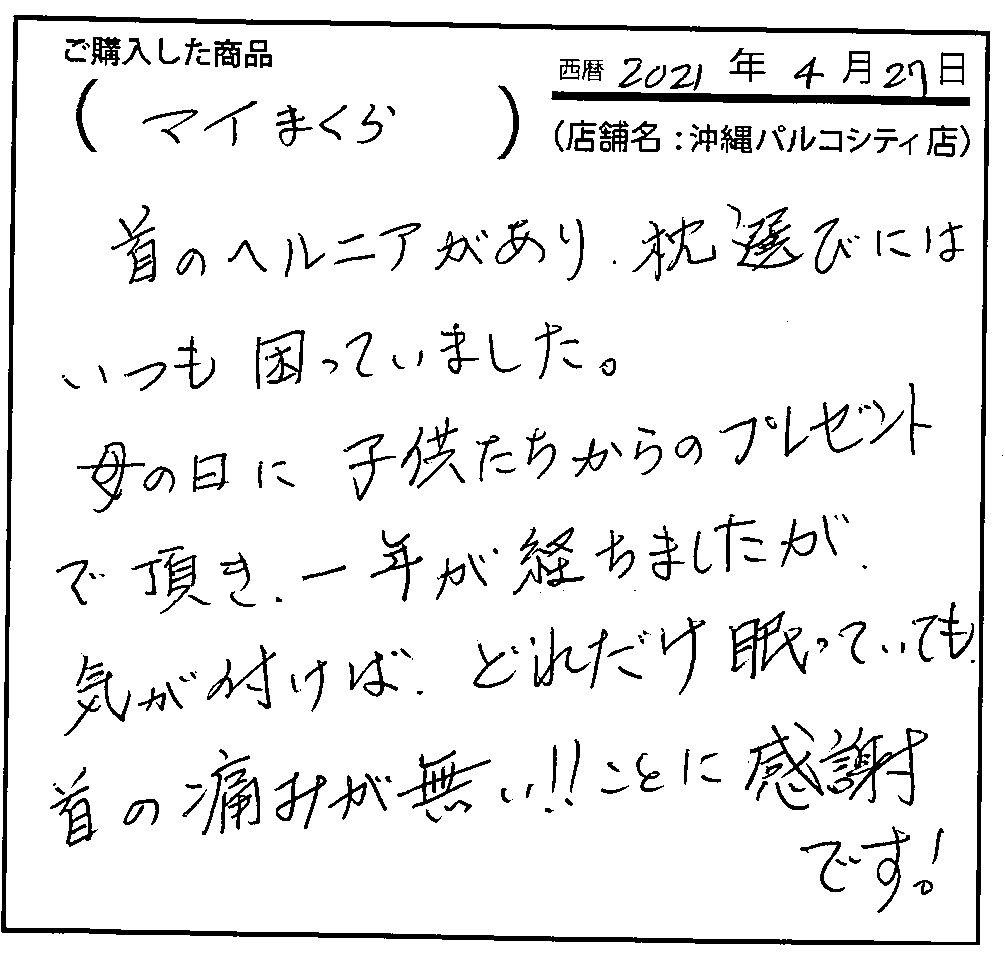 ご購入した商品
西暦 2021 年 4 月 27 日
( マイまくら )
(店舗名：沖縄パルコシティ店)
首のヘルニアがあり、枕選びには
いつも困っていました。
母の日に子供たちからのプレゼント
で頂き、一年が経ちましたが、
気が付けば、どれだけ眠っていても、
首の痛みが無い!!ことに感謝
です!